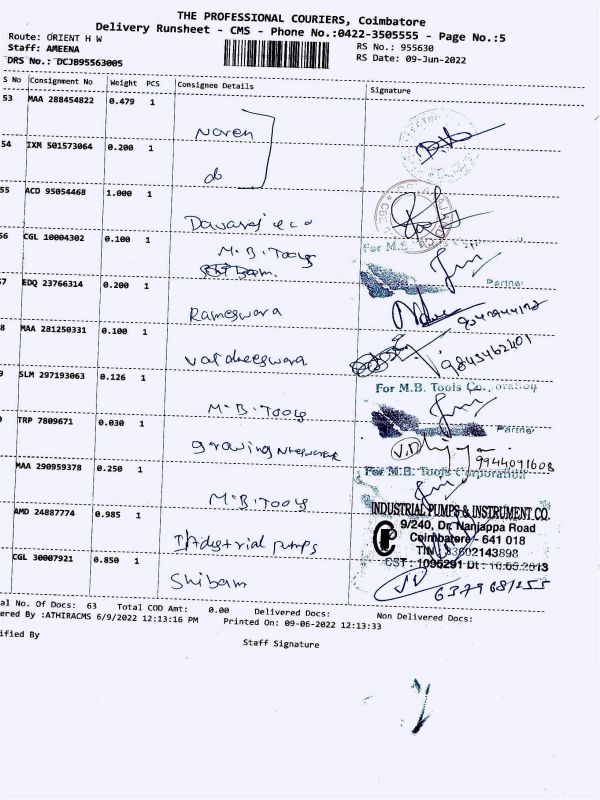 THE PROFESSIONAL COURIERS, Coimbatore
Delivery Runsheet - CMS - Phone No.:0422-3505555 - Page No.:5
Route: ORIENT H W
RS No.: 955630
Staff: AMEENA
RS Date: 09-Jun-2022
DRS No.: DCJB95563005
S No Consignment No Weight PCS Consignee Details Signature
53 MAA 288454822 0.479 1 Naren
54 IXM 501573064 0.200 1 do
55 ACD 95054468 1.000 1
56 CGL 10004302 0.100 1 M.B.Tools
For M.
Partner
7 EDQ 23766314 0.200 1 Rameswara
8 MAA 281250331 0.100 1
9843462401
9 SLM 297193063 0.126 1 M.B.Tools
For M.B. Tools Co
Partner
0 TRP 7809671 0.030 1 growing
V.D
9944091608
MAA 290959378 0.250 1 M.B.Tools
For M.B. Tools Corporation
AMD 24887774 0.985 1 Industrial pumps
INDUSTRIAL PUMPS & INSTRUMENT CO.
9/240, Dr. Nanjappa Road
Coimbatore - 641 018
TIN : 33602143898
CST : 1095291 Dt : 10.05.2013
CGL 30007921 0.850 1 Shibam
al No. Of Docs: 63 Total COD Amt: 0.00 Delivered Docs: Non Delivered Docs:
ered By :ATHIRACMS 6/9/2022 12:13:16 PM Printed On: 09-06-2022 12:13:33
ified By
Staff Signature